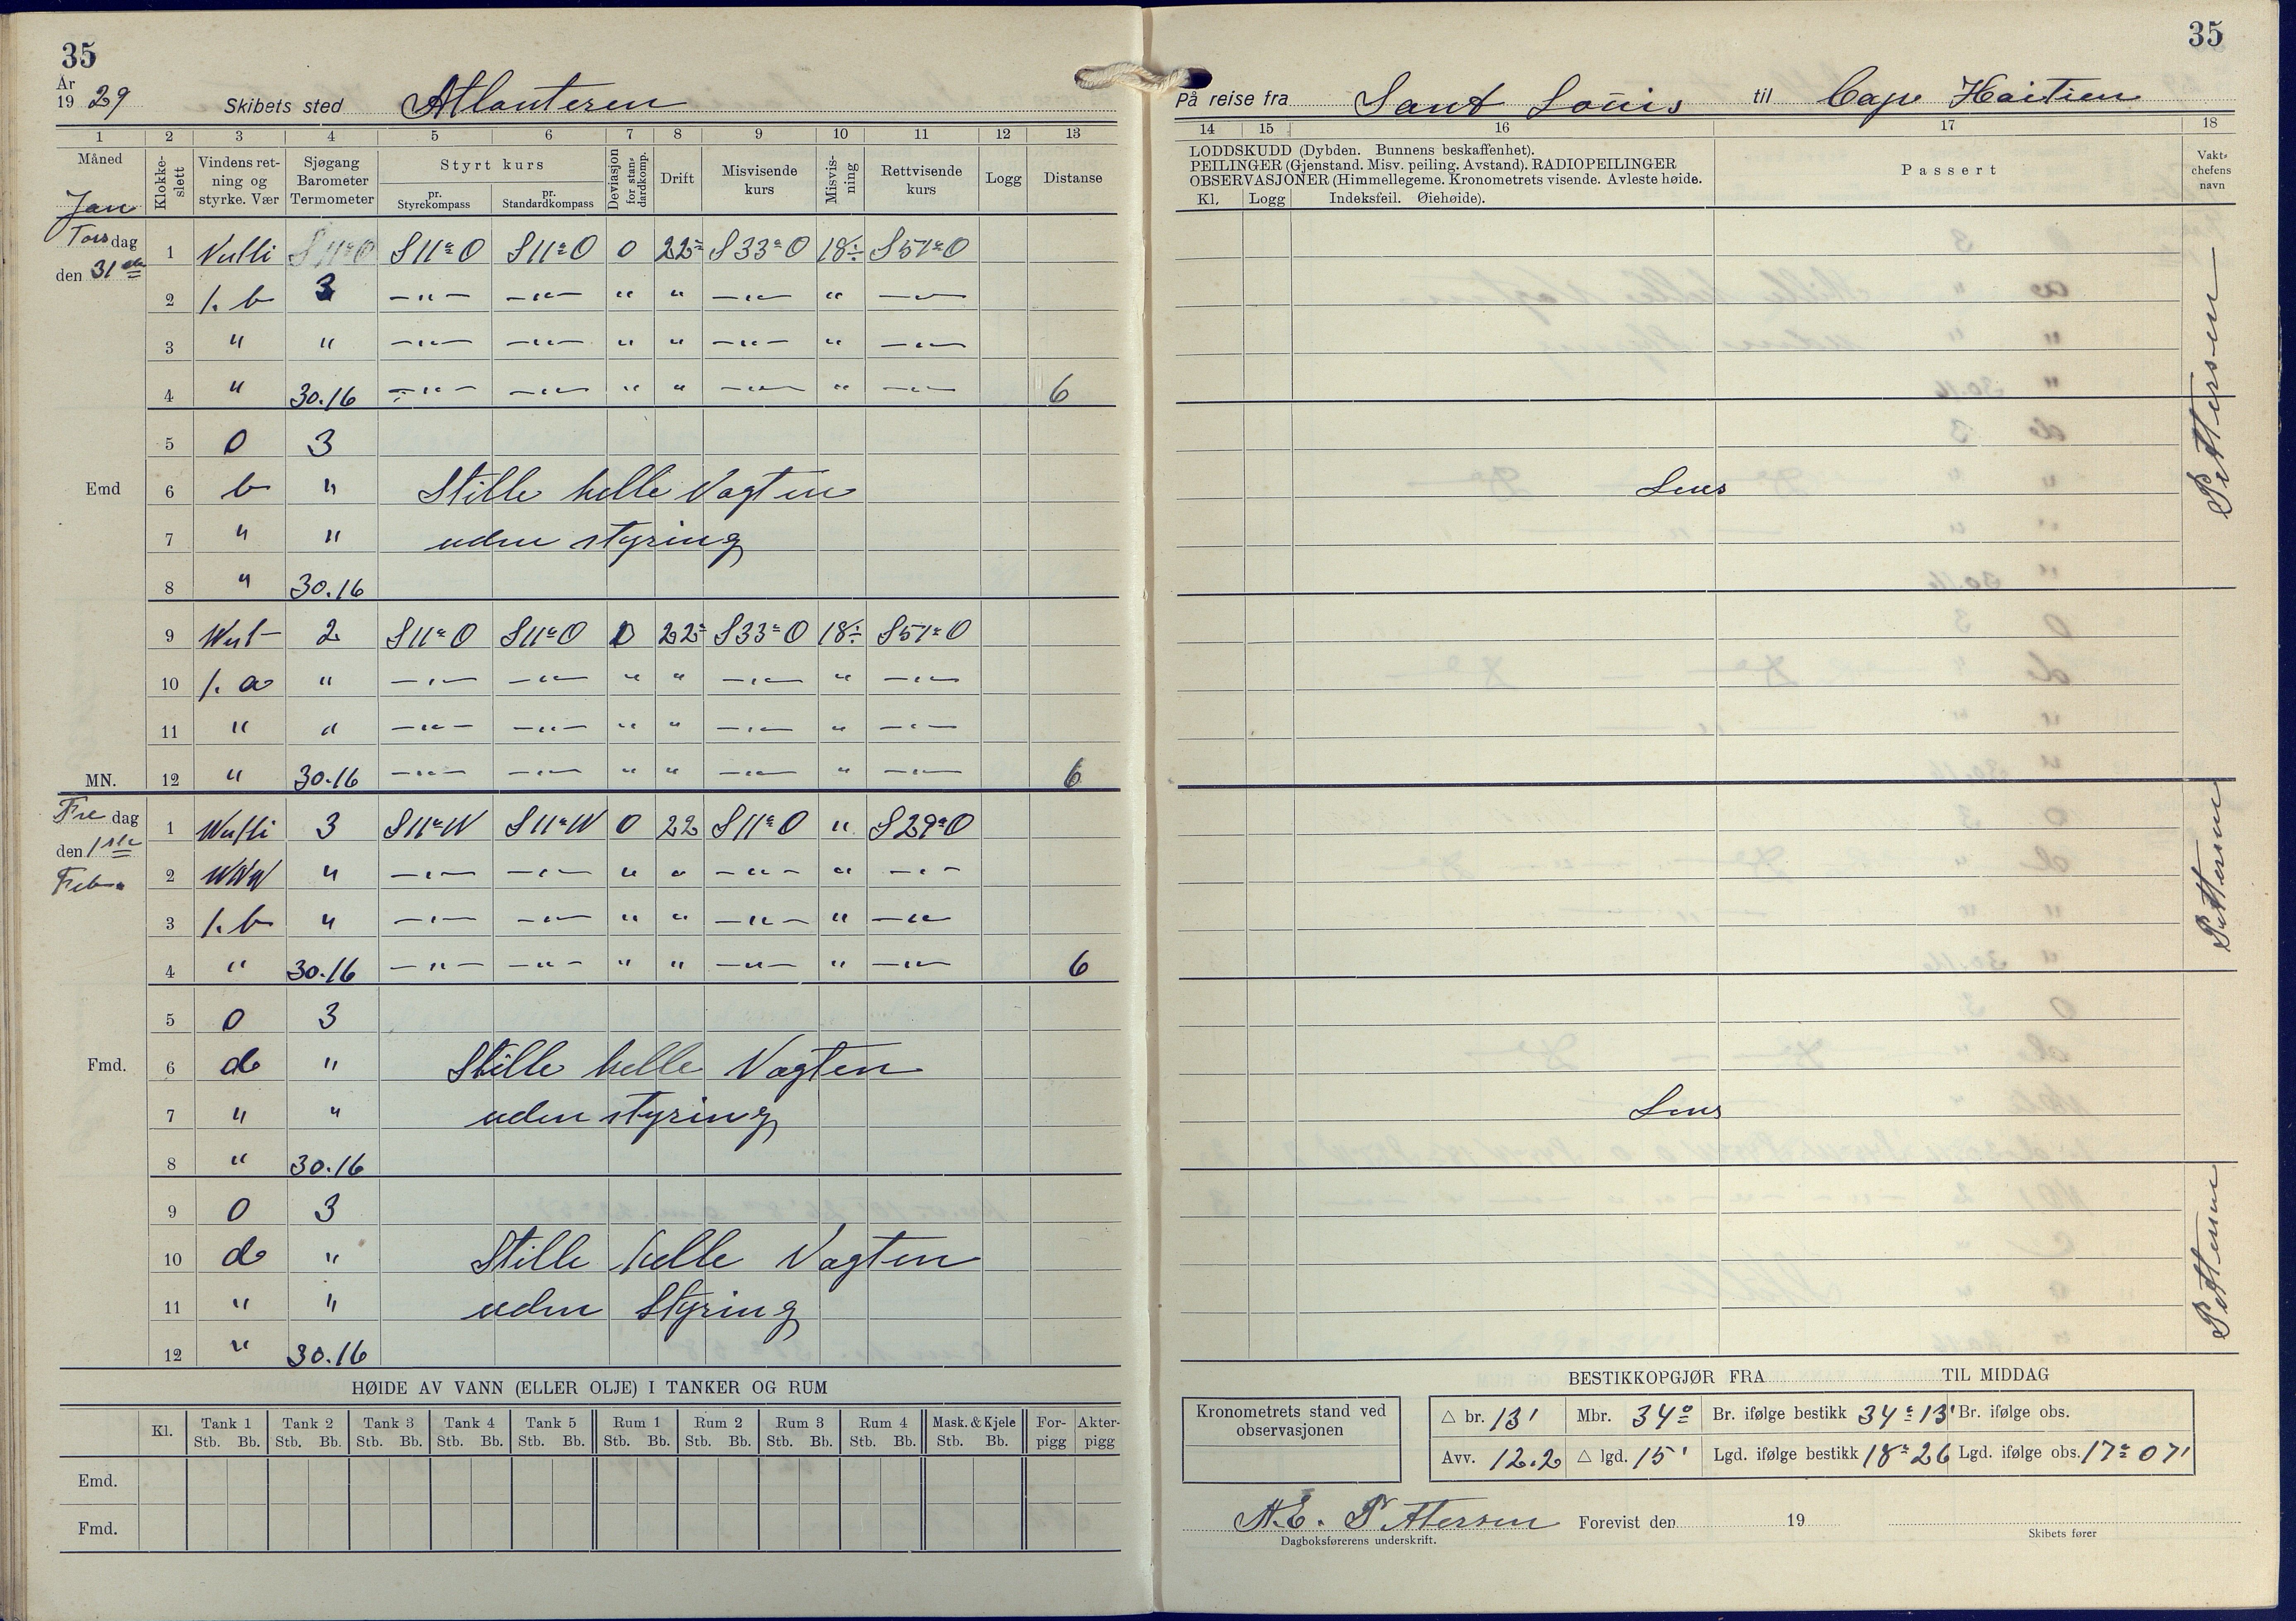 35
År
19 29
Skibets sted Atlanteren
1 2 3 4 5 6 7 8 9 10 11 12 13
Måned Jan
Klokkeslett
Vindens retning og styrke. Vær
Sjøgang Barometer Termometer
Styrt kurs
pr. Styrekompass
pr. Standardkompass
Deviasjon for standardkomp.
Drift
Misvisende kurs
Misvisning
Rettvisende kurs
Logg
Distanse
Torsdag 1 S11°O S11°O S11°O 0 22° S33°O 18÷ S51°O
den 31te
2 1. b 3 —„— —„— „ „ —„— „ —„—
3 „ „ —„— —„— „ „ —„— „ —„—
4 „ 30.16 —„— —„— „ „ —„— „ —„— 6
5 0 3
Emd 6 b „ Stille helle Vagten
7 „ „ uden styring
8 „ 30.16
9 West 2 S11°O S11°O 0 22° S33°O 18÷ S51°O
10 1. a „ —„— —„— „ „ —„— „ —„—
11 „ „ —„— —„— „ „ —„— „ —„—
MN. 12 „ 30.16 —„— —„— „ „ —„— „ —„— 6
Fredag 1 3 S11°W S11°W 0 22 S11°O „ S29°O
den 1ste
Feb.
2 „ —„— —„— „ „ —„— „ —„—
3 1. b „ —„— —„— „ „ —„— „ —„—
4 „ 30.16 —„— —„— „ „ —„— „ —„— 6
5 0 3
Fmd. 6 d „ Stille helle Vagten
7 „ „ uden styring
8 „ 30.16
9 0 3
10 d „ Stille helle Vagten
11 „ „ uden Styring
12 „ 30.16
HØIDE AV VANN (ELLER OLJE) I TANKER OG RUM
Kl. Tank 1 Tank 2 Tank 3 Tank 4 Tank 5 Rum 1 Rum 2 Rum 3 Rum 4 Mask. & Kjele Forpigg Akterpigg
Stb. Bb. Stb. Bb. Stb. Bb. Stb. Bb. Stb. Bb. Stb. Bb. Stb. Bb. Stb. Bb. Stb. Bb. Stb. Bb.
Emd.
Fmd.
35
På reise fra Sant Louis til Cape Haitien
14 15 16 17 18
LODDSKUDD (Dybden. Bunnens beskaffenhet).
PEILINGER (Gjenstand. Misv. peiling. Avstand). RADIOPEILINGER
OBSERVASJONER (Himmellegeme. Kronometrets visende. Avleste høide.
Kl. Logg Indeksfeil. Øiehøide).
Passert
Vaktchefens navn
Pettersen
Lens
Pettersen
Lens
Pettersen
BESTIKKOPGJØR FRA TIL MIDDAG
Kronometrets stand ved observasjonen
△ br. 13' Mbr. 34° Br. ifølge bestikk 34° 13' Br. ifølge obs.
Avv. 12.2 △ lgd. 15' Lgd. ifølge bestikk 18° 26 Lgd. ifølge obs. 17° 07'
A.E. Pettersen Forevist den 19
Dagboksførerens underskrift.
Skibets fører